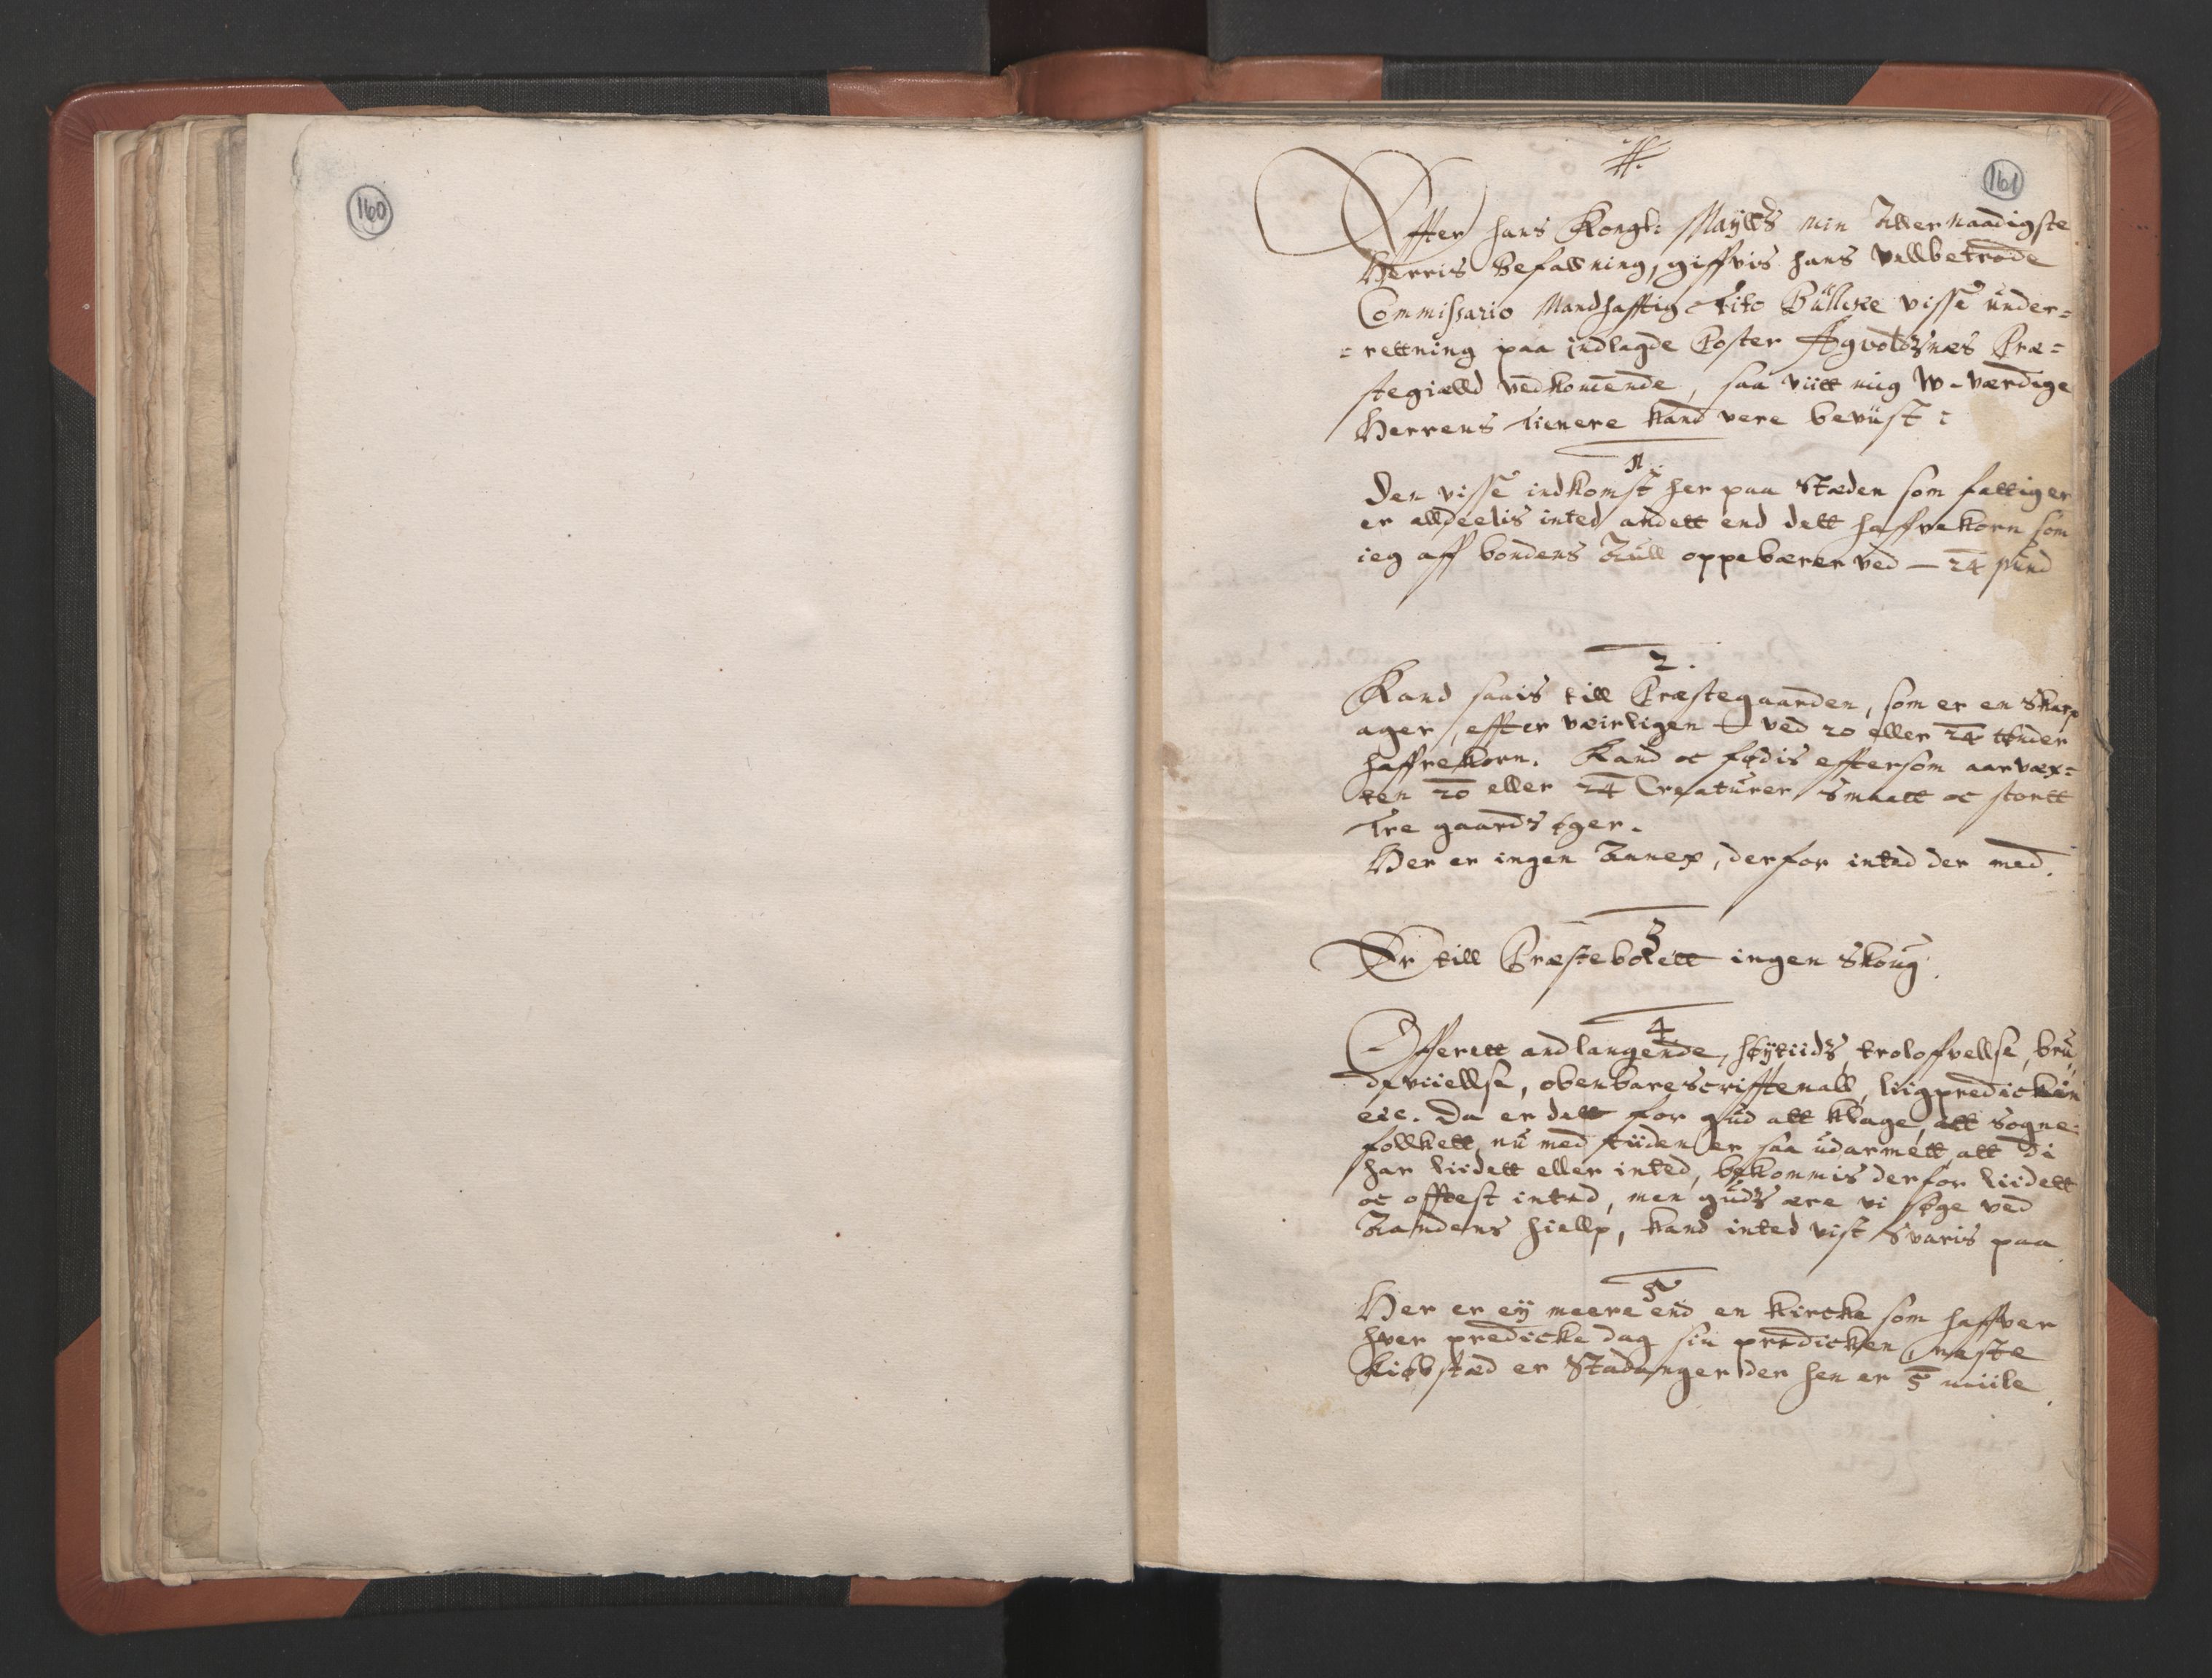 160
161
Effter hans Kongl: Maÿtts min Allernaadigste
Herris Befallning, giffvis hans vellbetrode
Commissario Mandhafftig Tito Bülcke visse ünder=
=rettning paa indlagde Poster Agvoldznæs Præ=
stegielld vedkommende, saa viitt mig W-værdige
Herrens Tienere kand vere bevüst:
1.
Den visse indkomst her paa Stæden som fattig er
er alldeelis inted andett end dett haffrekorn som
ieg aff bondens Aull oppebærer ved — 24 pund
2.
Kand saais till Præstegaarden, som er en skarp
ager, effter væirligen – ved 20 eller 24 tønder
haffrekorn. Kand oc fødis eftersom aarvæx=
ten 20 eller 24 Creatürer Smaatt oc stortt
Tre gaards øger.
Her er ingen Annex, derfor inted der med.
3
Er till Præstebolett ingen Skoug.
4
Offerett andlangende, høÿtiids, trolofvellse, brü
deviiellse, obenbare scrifftemall, liigpredicken
etc. Da er dett for gud att klage, att Sogne=
follkett nü med tiiden er saa üdarmett, att di
har liidett eller inted, bekommis derfor liidett
oc offtest inted, men güds ære vi søge ved
Aandens hiellp, kand inted vist Svaris paa
5
Her er eÿ meere end en kircke som haffver
hver predicke dag sin predicken, neste
kiøbstæd er Stadanger der hen er 5 miile.